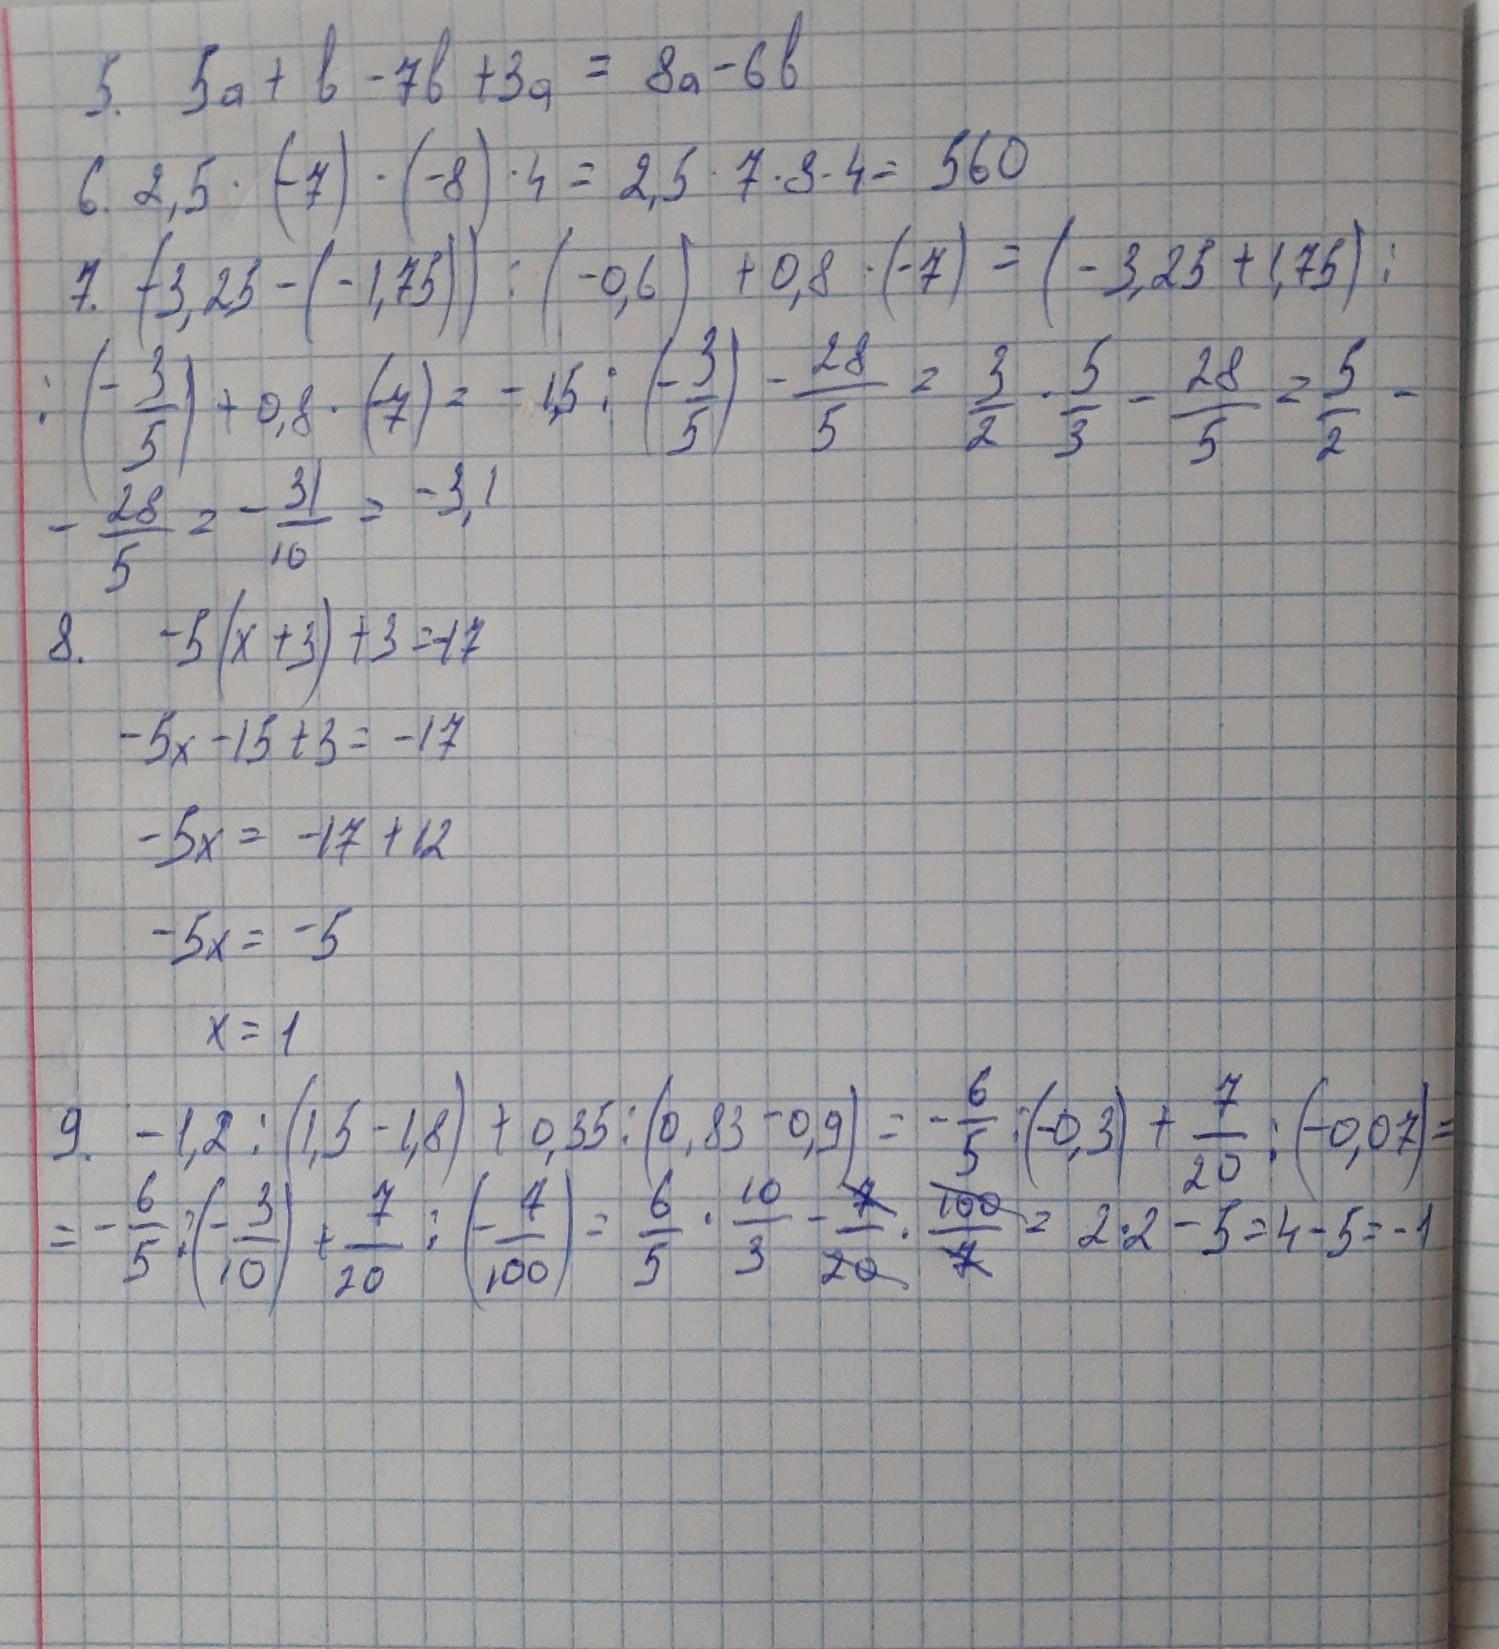 5. 5a + b - 7b + 3a = 8a - 6b
6. 2,5 · (-7) · (-8) · 4 = 2,5 · 7 · 8 · 4 = 560
7. (-3,25 - (-1,75)) : (-0,6) + 0,8 · (-7) = (-3,25 + 1,75) :
: (-3/5) + 0,8 · (-7) = -1,5 : (-3/5) - 28/5 = 3/2 · 5/3 - 28/5 = 5/2 -
- 28/5 = -31/10 = -3,1
8. -5(x + 3) + 3 = -17
-5x - 15 + 3 = -17
-5x = -17 + 12
-5x = -5
x = 1
9. -1,2 : (1,5 - 1,8) + 0,35 : (0,83 - 0,9) = -6/5 : (-0,3) + 7/20 : (-0,07) =
= -6/5 : (-3/10) + 7/20 : (-7/100) = 6/5 · 10/3 - 7/20 · 100/7 = 2·2 - 5 = 4 - 5 = -1